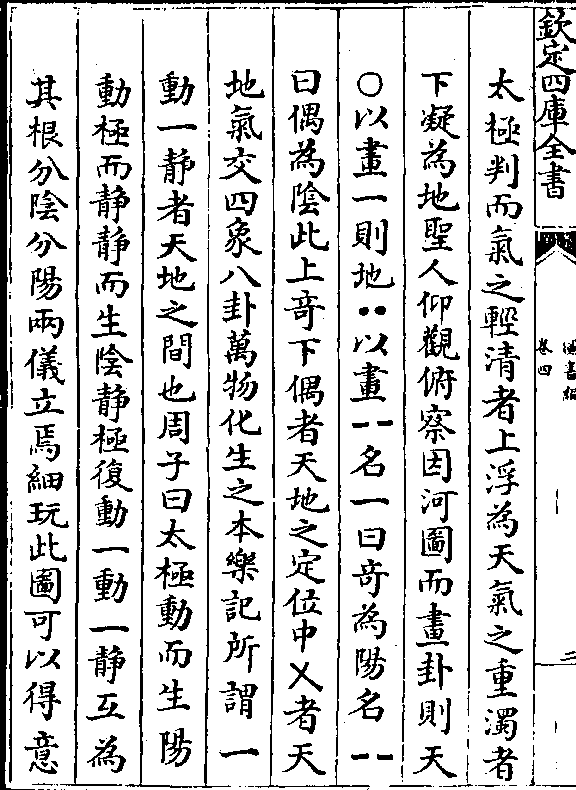 欽定四庫全書
圖書編
卷四
太極判而氣之輕清者上浮為天氣之重濁者
下凝為地聖人仰觀俯察因河圖而畫卦則天
○以畫一則地••以畫--名一曰竒為陽名--
曰偶為陰此上竒下偶者天地之定位中㐅者天
地氣交四象八卦萬物化生之本樂記所謂一
動一靜者天地之間也周子曰太極動而生陽
動極而靜靜而生陰靜極復動一動一靜互為
其根分陰分陽兩儀立焉細玩此圖可以得意